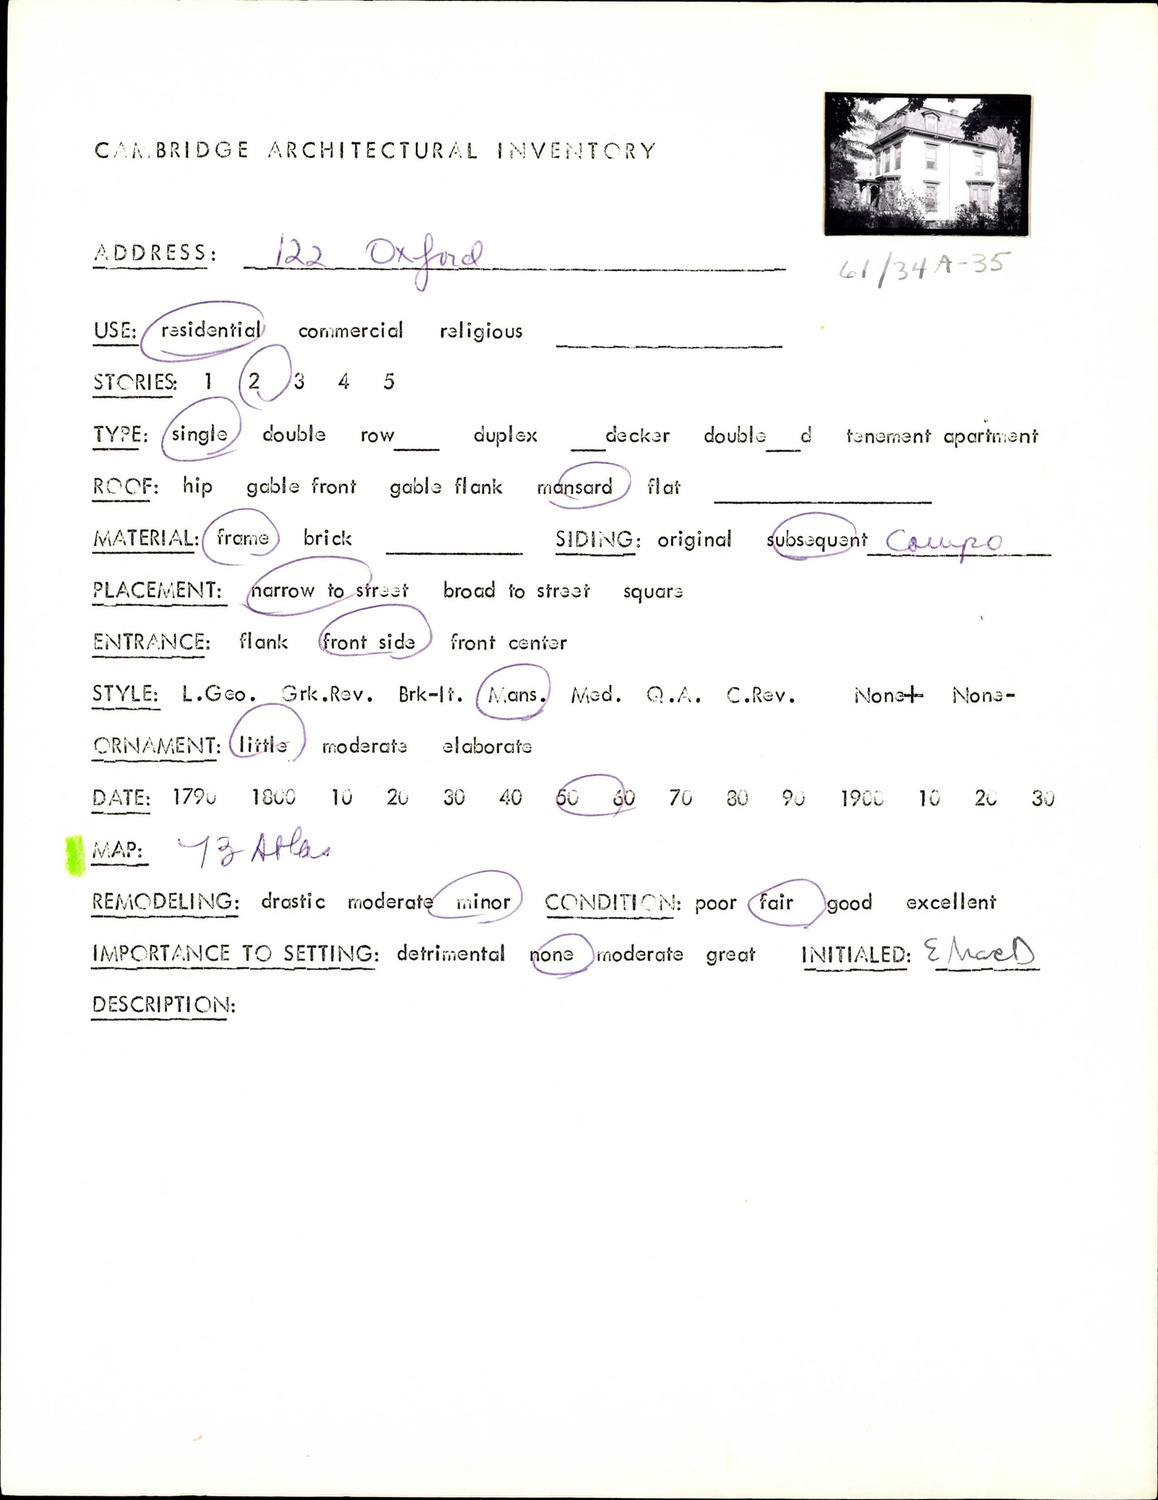 CAMBRIDGE ARCHITECTURAL INVENTORY
ADDRESS: 122 Oxford
61/34A-35
USE: residential commercial religious
STORIES: 1 2 3 4 5
TYPE: single double row___ duplex ___decker double___d tenement apartment
ROOF: hip gable front gable flank mansard flat
MATERIAL: frame brick SIDING: original subsequent Compo
PLACEMENT: narrow to street broad to street square
ENTRANCE: flank front side front center
STYLE: L.Geo. Grk.Rev. Brk-It. Mans. Med. Q.A. C.Rev. None+ None-
ORNAMENT: little moderate elaborate
DATE: 1790 1800 10 20 30 40 50 60 70 80 90 1900 10 20 30
MAP: 73 Atlas
REMODELING: drastic moderate minor CONDITION: poor fair good excellent
IMPORTANCE TO SETTING: detrimental none moderate great INITIALED: E MacD
DESCRIPTION: